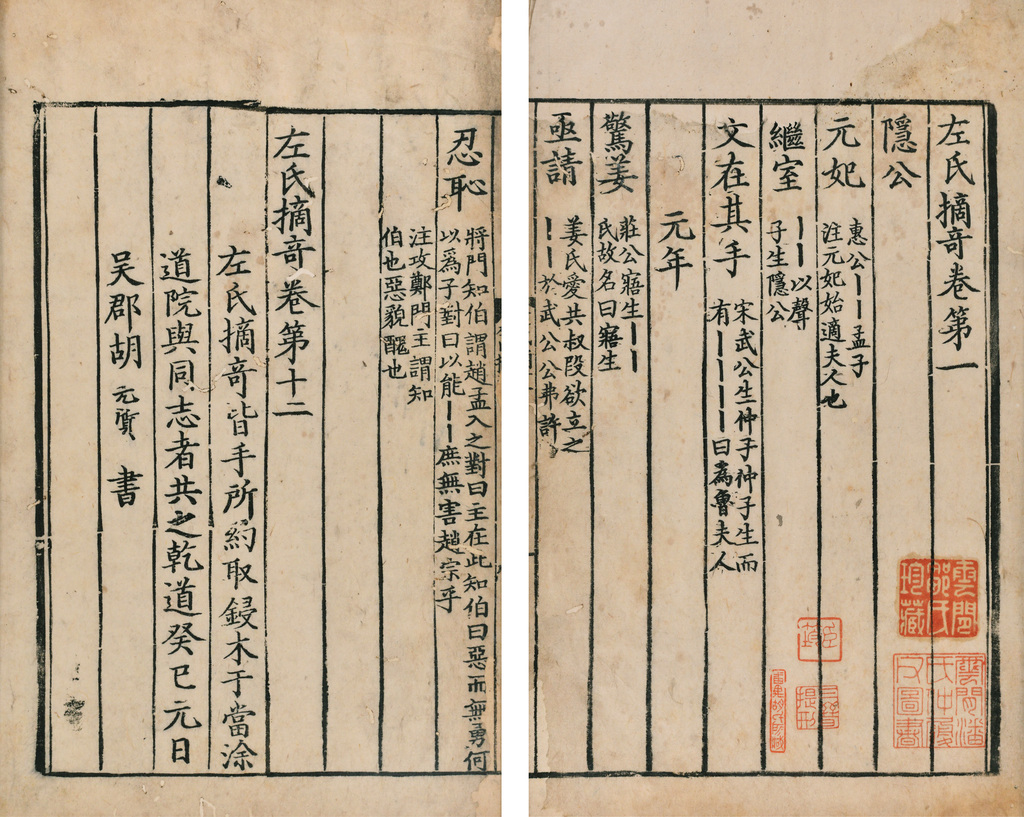 左氏摘奇卷第一
隱公
元妃
惠公——孟子
注元妃始適夫人也
繼室
——以聲
子生隱公
文在其手
宋武公生仲子仲子生而
有————曰爲魯夫人
元年
驚姜
莊公寤生——
氏故名曰寤生
亟請
姜氏愛共叔段欲立之
——於武公公弗許
忍恥
將門知伯謂趙孟入之對曰主在此知伯曰惡而無勇何
以爲子對曰以能——庶無害趙宗乎
注攻鄭門主謂知
伯也惡貌醜也
左氏摘奇卷第十二
左氏摘奇皆手所約取鋟木于當涂
道院與同志者共之乾道癸巳元日
吴郡胡元質書
雲間
邵氏
珍藏
雲間潘
氏仲履
父圖書